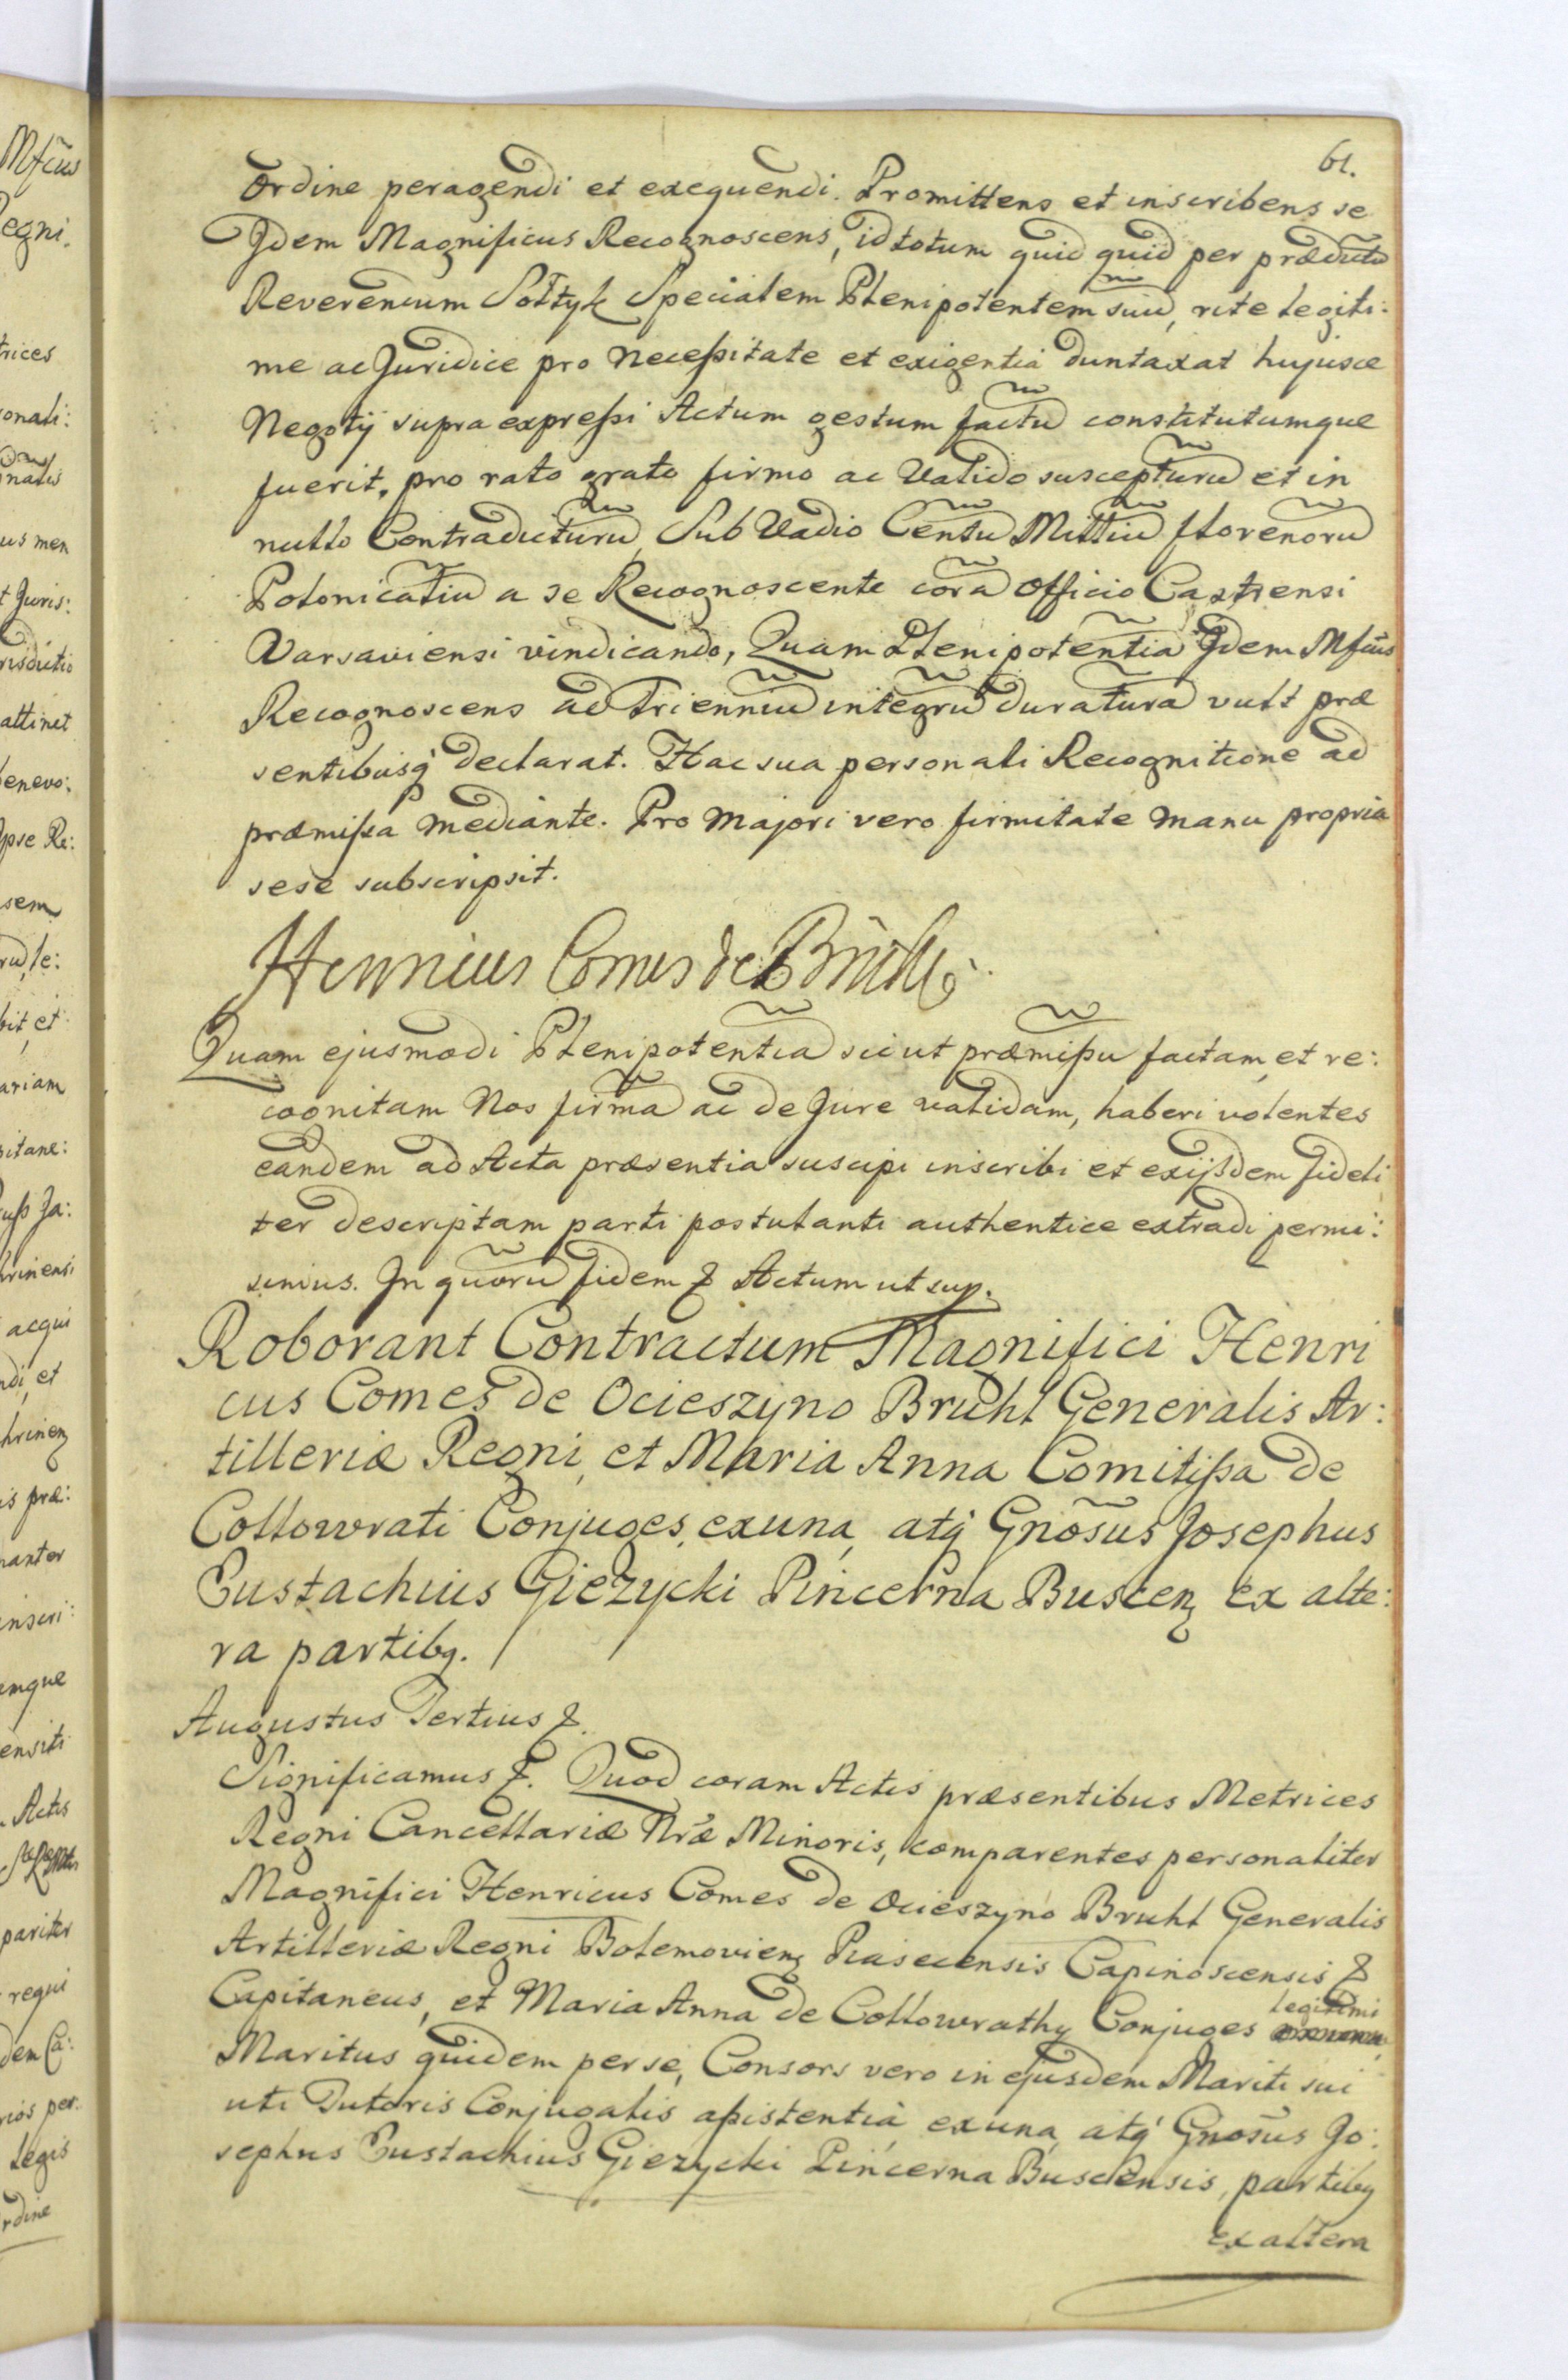 61.
Ordine peragendi et exequendi. Promittens et inscribens se
Idem Magnificus Recognoscens, id totum quid quid per prædictũ
Reverendum Sołtyk Specialem Plenipotentem suũ, rite legiti:
me ac Juridice pro necessitate et exigentia duntaxat hujusce
Negotij supra expressi Actum gestum factũ constitutumque
fuerit, pro rato grato firmo ac Valido suscepturũ et in
nullo Contradicturũ, Sub Vadio Centũ Milliũ florenorũ
Polonicaliũ a se Recognoscente corã Officio Castrensi
Varsaviensi vindicando, Quam Plenipotentiã Idem Mfcus
Recognoscens ad Trienniũ integrũ duraturã vult præ
sentibusq declarat. Hac sua personali Recognitione ad
præmissa mediante. Pro Majori vero firmitate manu propria
sese subscripsit.
Henricus Comes de Brühl
Quam ejusmodi Plenipotentiã sicut præmissũ factam, et re:
cognitam Nos firmã ac de Jure validam, haberi volentes
eandem ad Acta præsentia suscipi inscribi et exijsdem fideli
ter descriptam parti postulanti authentice extradi permi:
simus. In quorũ fidem & Actum ut sup.
Roborant Contractum Magnifici Henri
cus Comes de Ocieszyno Bruhl Generalis Ar:
tilleriæ Regni, et Maria Anna Comitissa de
Collowrati Conjuges, exuna, atq Gnõsus Josephus
Eustachius Giezycki Pincerna Buscen ex alte:
ra partibq.
Augustus Tertius &.
Significamus &. Quod coram Actis præsentibus Metrices
Regni Cancellariæ Nræ Minoris, comparentes personaliter
Magnifici Henricus Comes de Ocieszyno Bruhl Generalis
Artilleriæ Regni Bolemovien Piasecensis Capinoscensis &
Capitaneus, et Maria Anna de Collowrathy Conjuges legitimi
Maritus quidem per se, Consors vero in ejusdem Mariti sui
uti Tutoris Conjugalis assistentia exuna, atq Gnosus Jo:
sephus Eustachius Giezycki Pincerna Buscensis, partibq
ex altera